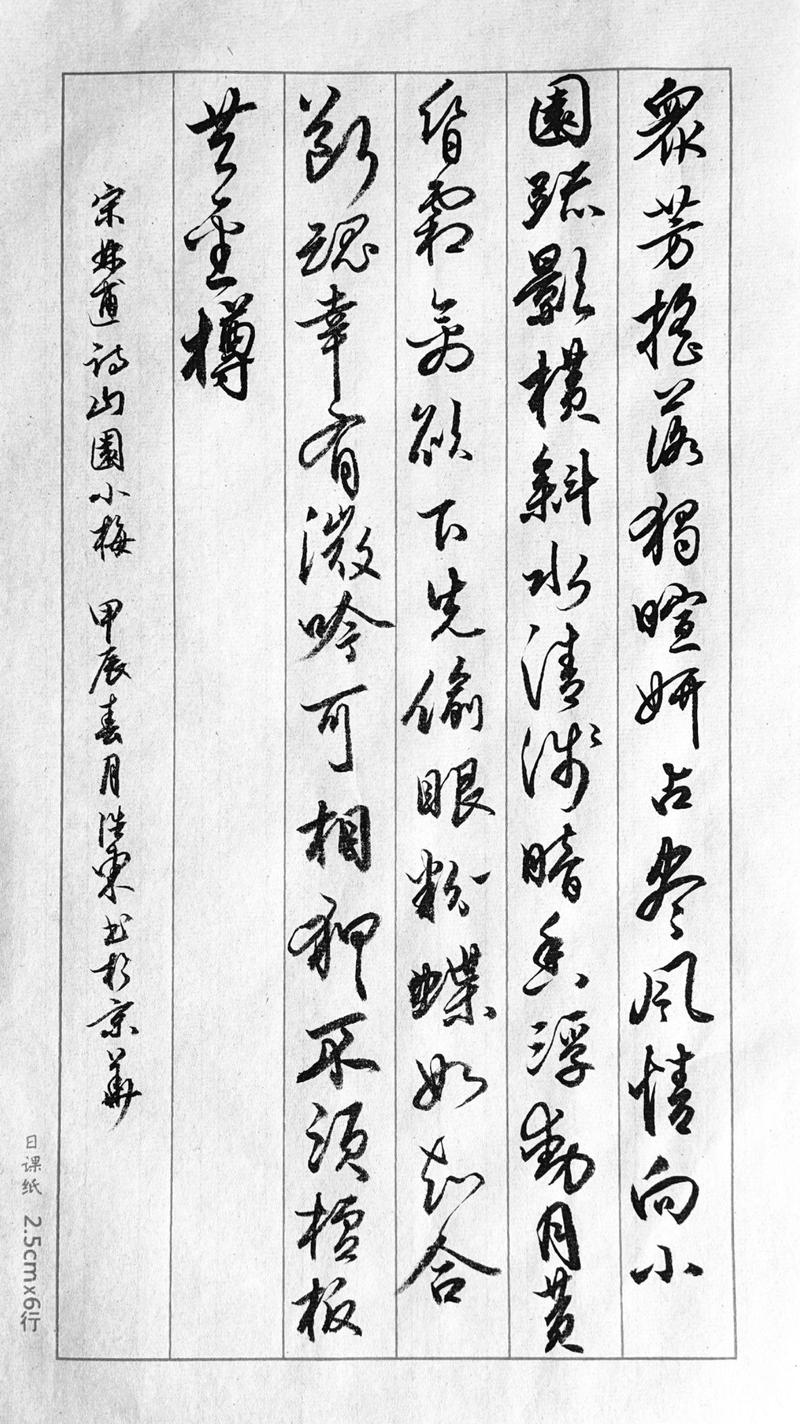 眾芳搖落獨暄妍占盡風情向小
園疏影橫斜水清淺暗香浮動月黃
昏霜禽欲下先偷眼粉蝶如知合
斷魂幸有微吟可相狎不須檀板
共金樽
宋林逋詩山園小梅 甲辰春月浩東书於京華
日课纸 2.5cm×6行